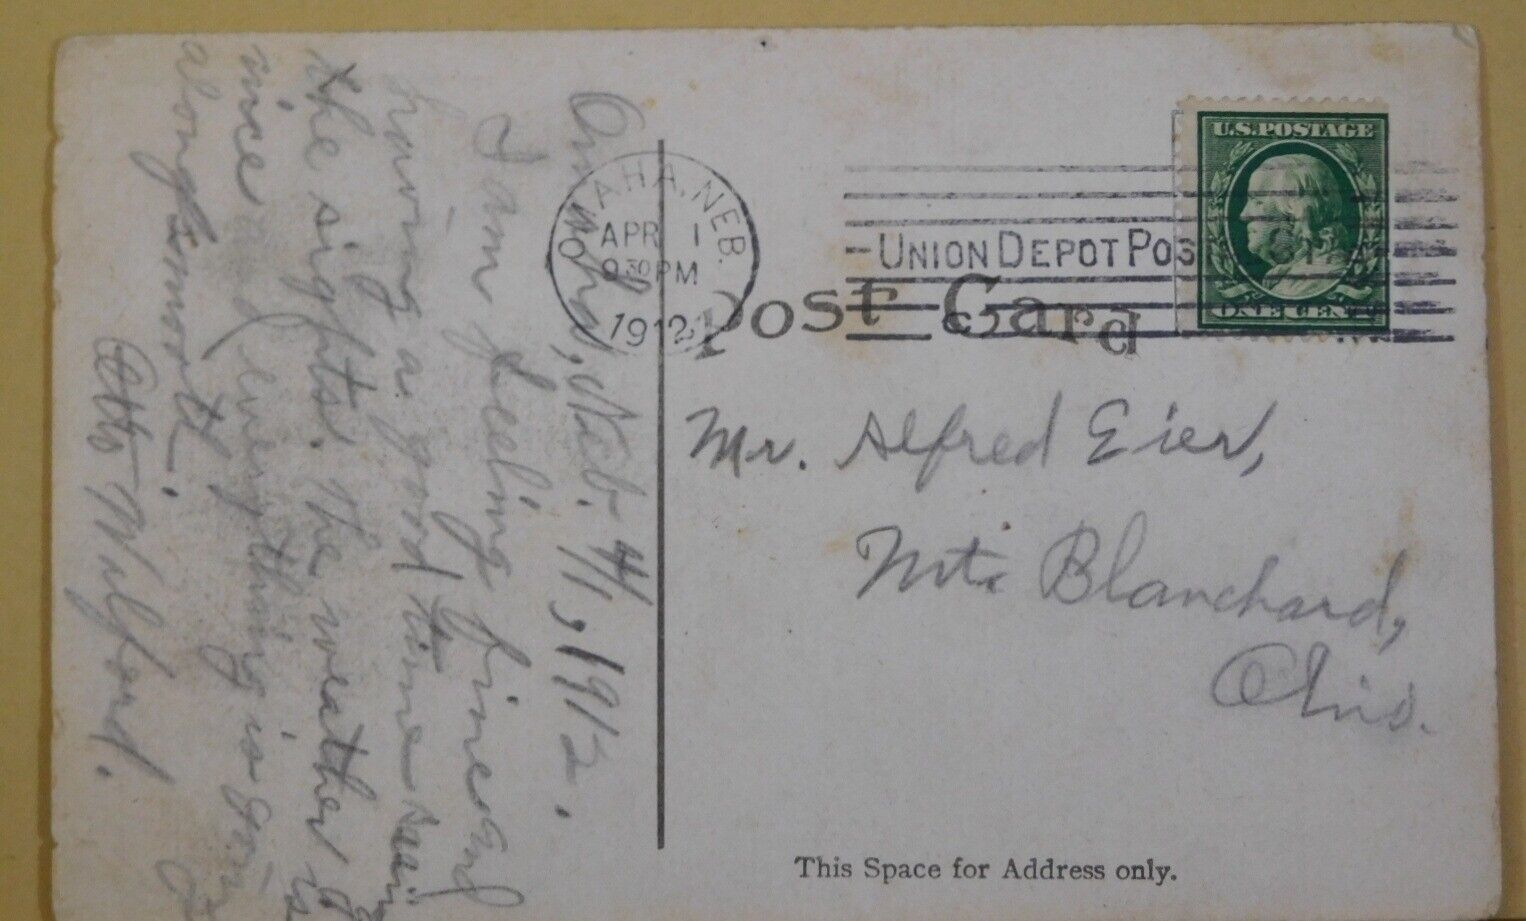 Omaha, Neb. 4/1, 1912.
I am feeling fine and
having a good time seeing
the sights. The weather is
nice and everything is going
along smooth.
Otto Wilford.
OMAHA, NEB.
APR 1
930 PM
1912
UNION DEPOT POST STA
U.S. POSTAGE
ONE CENT
Post Card
Mr. Alfred Eier,
Mt. Blanchard,
Ohio.
This Space for Address only.